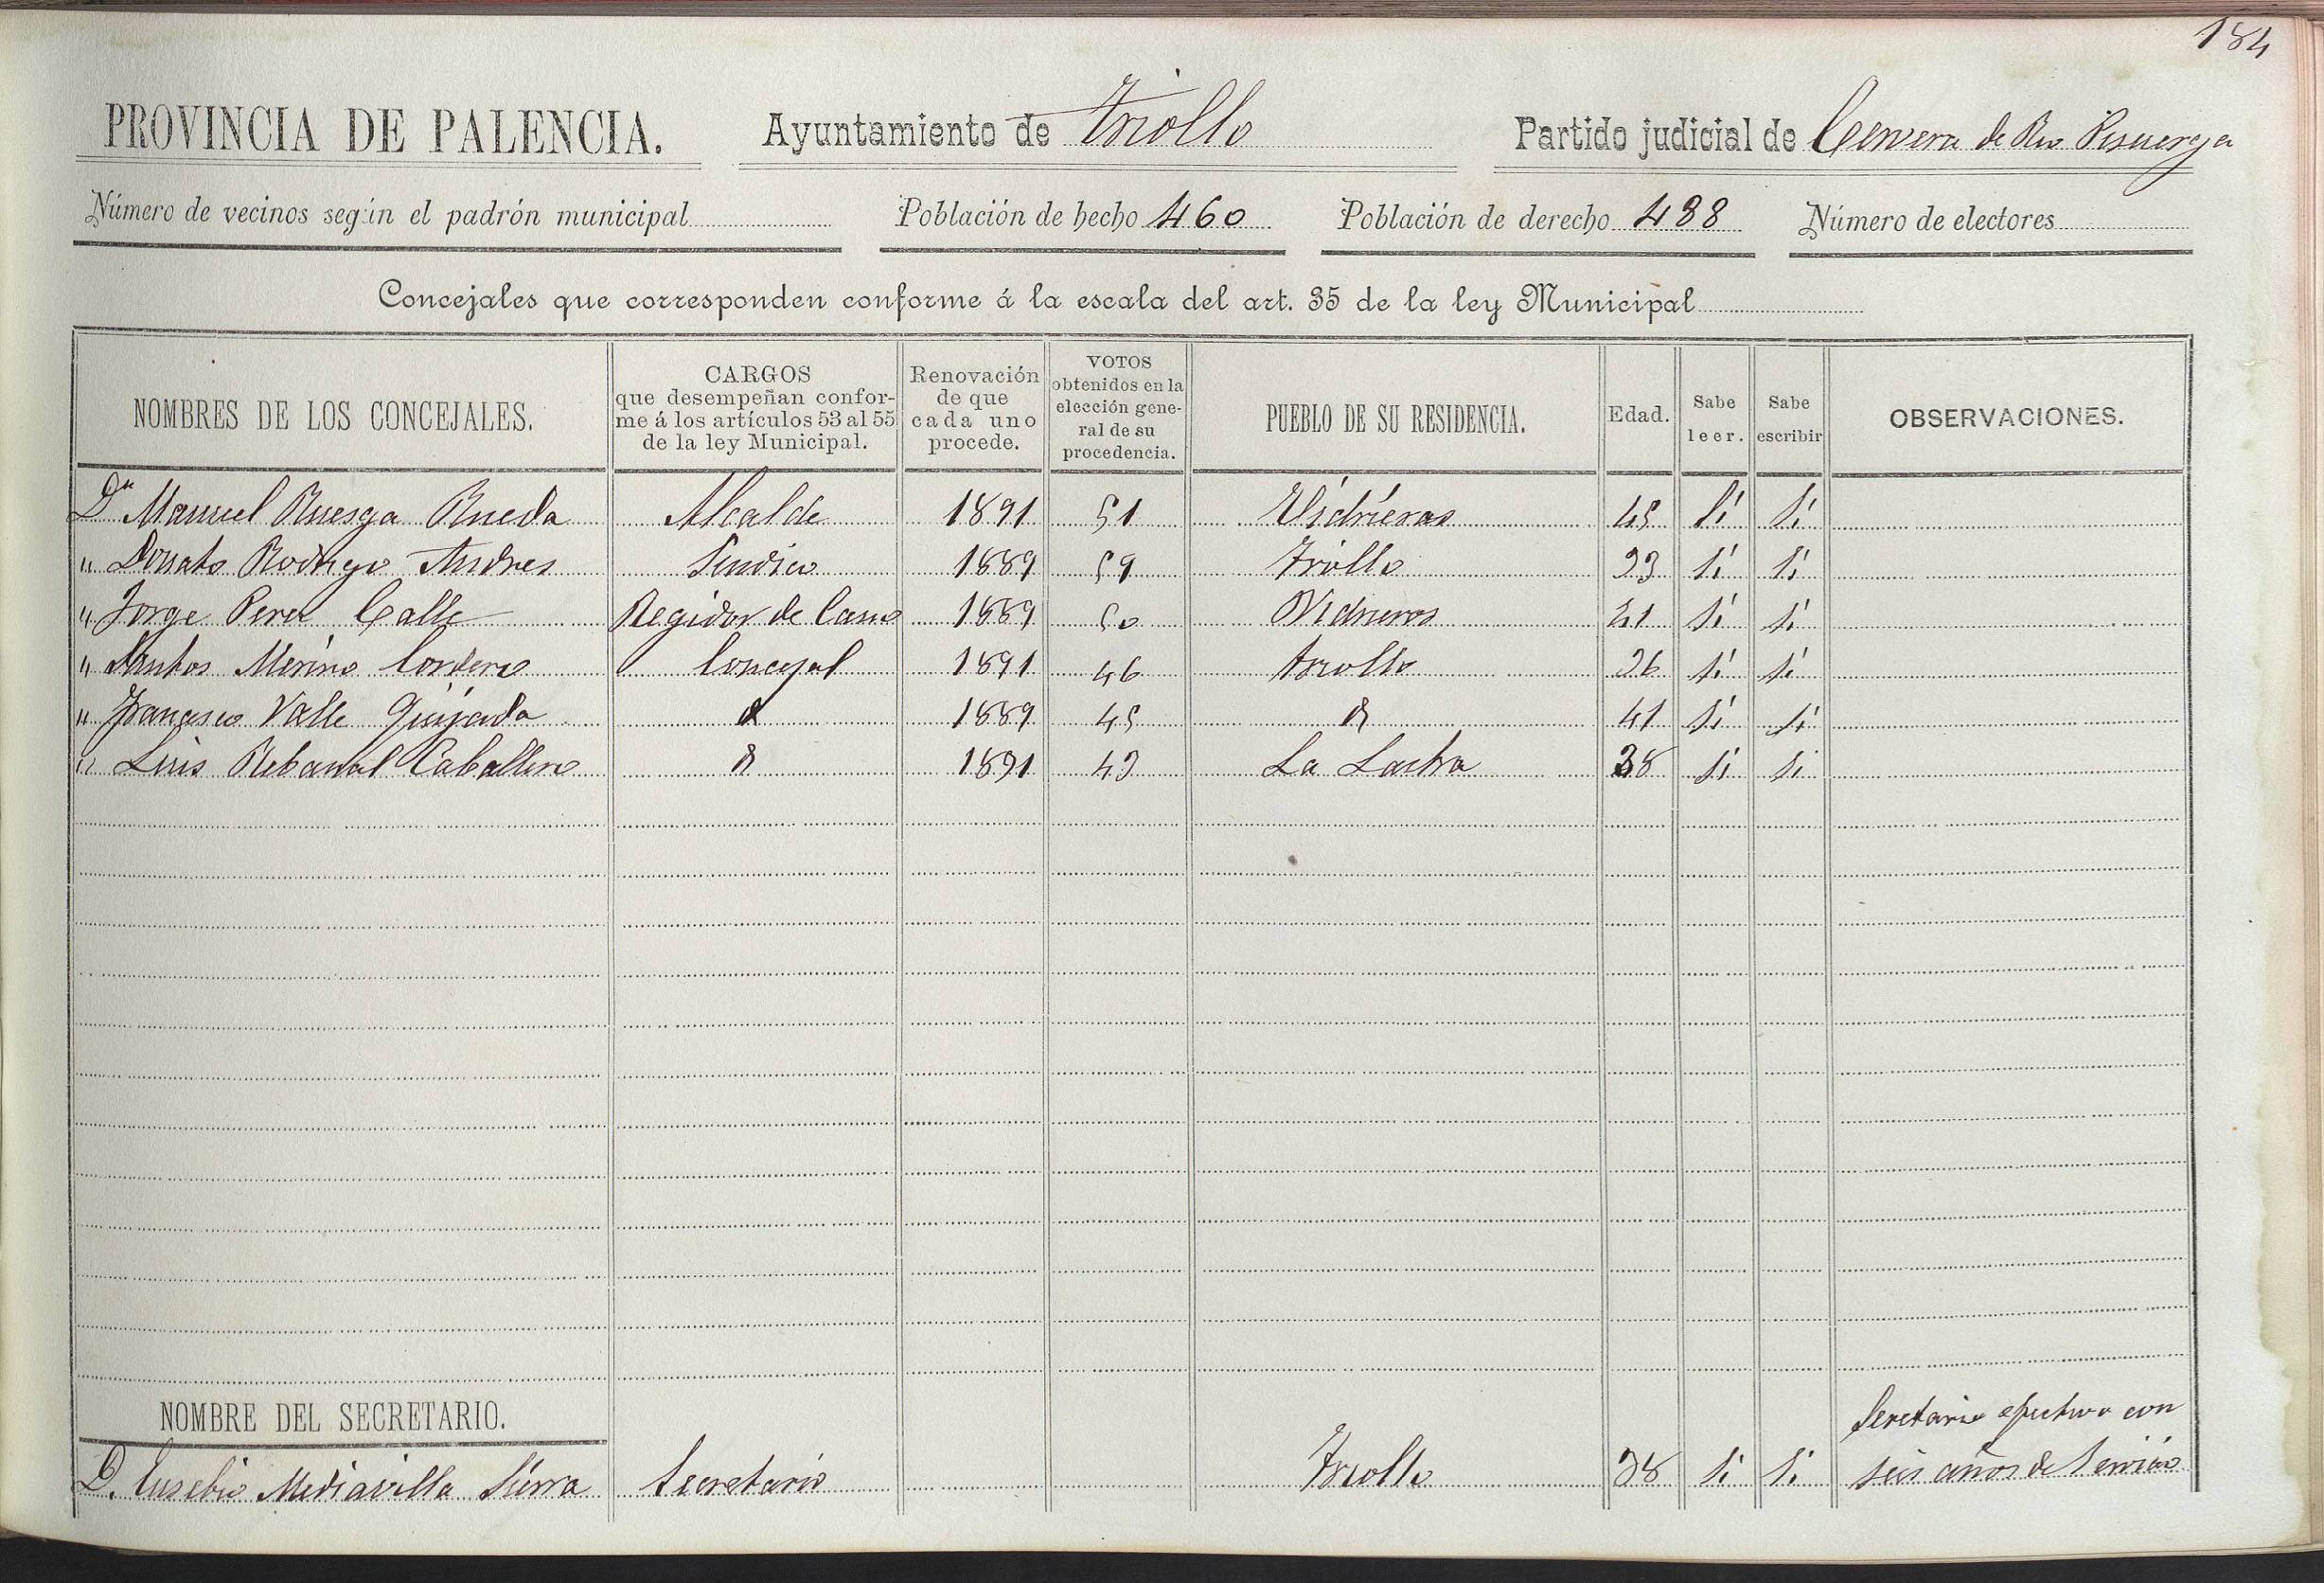 184
PROVINCIA DE PALENCIA. Ayuntamiento de Triollo Partido judicial de Cervera de Rio Pisuerga
Número de vecinos según el padrón municipal Población de hecho 460 Población de derecho 488 Número de electores
Concejales que corresponden conforme á la escala del art. 35 de la ley Municipal
NOMBRES DE LOS CONCEJALES. CARGOS que desempeñan conforme á los artículos 53 al 55 de la ley Municipal. Renovación de que cada uno procede. VOTOS obtenidos en la elección general de su procedencia. PUEBLO DE SU RESIDENCIA. Edad. Sabe leer. Sabe escribir OBSERVACIONES.
Dn Manuel Ruesga Rueda Alcalde 1891 51 Vidrieros 45 Sí Sí
" Donato Rodrigo Andres Sindico 1889 59 Triollo 23 Sí Sí
" Jorge Perez Calle Regidor de 1889 50 Vidrieros 41 Sí Sí
" Santos Merino Cordero Concejal 1891 46 Triollo 26 Sí Sí
" Francisco Valle Quijada 1889 45 41 Sí Sí
" Luis Rebanal Caballero 1891 43 La Lastra 38 Si Si
NOMBRE DEL SECRETARIO.
D. Eusebio Mediavilla Sierra Secretario Triollo 38 Si Si Secretario efectivo con
seis años de Servicio